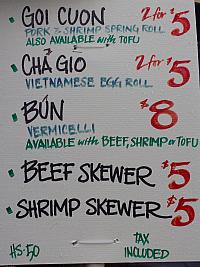 GOI CUON 2 for $5
PORK & SHRIMP SPRING ROLL
ALSO AVAILABLE with TOFU
CHẢ GIO 2 for $5
VIETNAMESE EGG ROLL
BÚN $8
VERMICELLI
AVAILABLE with BEEF, SHRIMP or TOFU
BEEF SKEWER $5
SHRIMP SKEWER $5
TAX
HS·50 INCLUDED